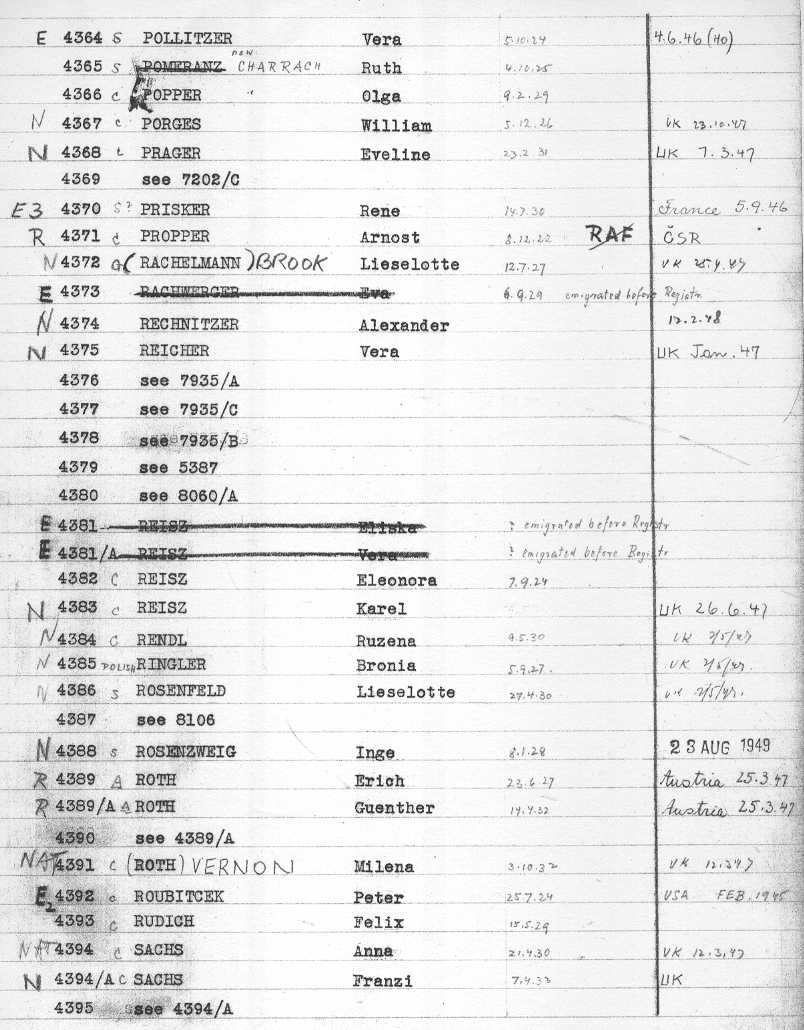 E 4364 S POLLITZER Vera 5.10.24 4.6.46 (HO)
4365 S POMERANZ now CHARRACH Ruth 4.10.25
4366 C POPPER " Olga 9.2.29
N 4367 C PORGES William 5.12.26 UK 23.10.47
N 4368 PRAGER Eveline 23.2.31 UK 7.3.47
4369 see 7202/C
E3 4370 S? PRISKER Rene 14.7.30 France 5.9.46
R 4371 C PROPPER Arnost 8.12.22 RAF ČSR
N 4372 G (RACHELMANN) BROOK Lieselotte 12.7.27 UK 25.4.47
E 4373 RACHWERGER Eva 6.9.29 emigrated before Registr
N 4374 RECHNITZER Alexander 12.2.48
N 4375 REICHER Vera UK Jan. 47
4376 see 7935/A
4377 see 7935/C
4378 see 7935/B
4379 see 5387
4380 see 8060/A
E 4381 REISZ Eliska ? emigrated before Registr
E 4381/A REISZ Vera ? emigrated before Registr
4382 C REISZ Eleonora 7.9.24
N 4383 C REISZ Karel UK 26.6.47
N 4384 C RENDL Ruzena 9.5.30 UK 2/5/47
N 4385 POLISH RINGLER Bronia 5.9.27. UK 2/5/47.
N 4386 S ROSENFELD Lieselotte 27.4.30 UK 2/5/47.
4387 see 8106
N 4388 S ROSENZWEIG Inge 8.1.28 23 AUG 1949
R 4389 A ROTH Erich 23.6.27 Austria 25.3.47
R 4389/A A ROTH Guenther 14.4.32 Austria 25.3.47
4390 see 4389/A
NAT 4391 C (ROTH) VERNON Milena 3.10.32 UK 12.3.47
E2 4392 C ROUBITCEK Peter 25.7.24 USA FEB. 1945
4393 C RUDICH Felix 15.5.29
NAT 4394 C SACHS Anna 21.4.30 UK 12.3.47
N 4394/A C SACHS Franzi 7.4.33 UK
4395 see 4394/A